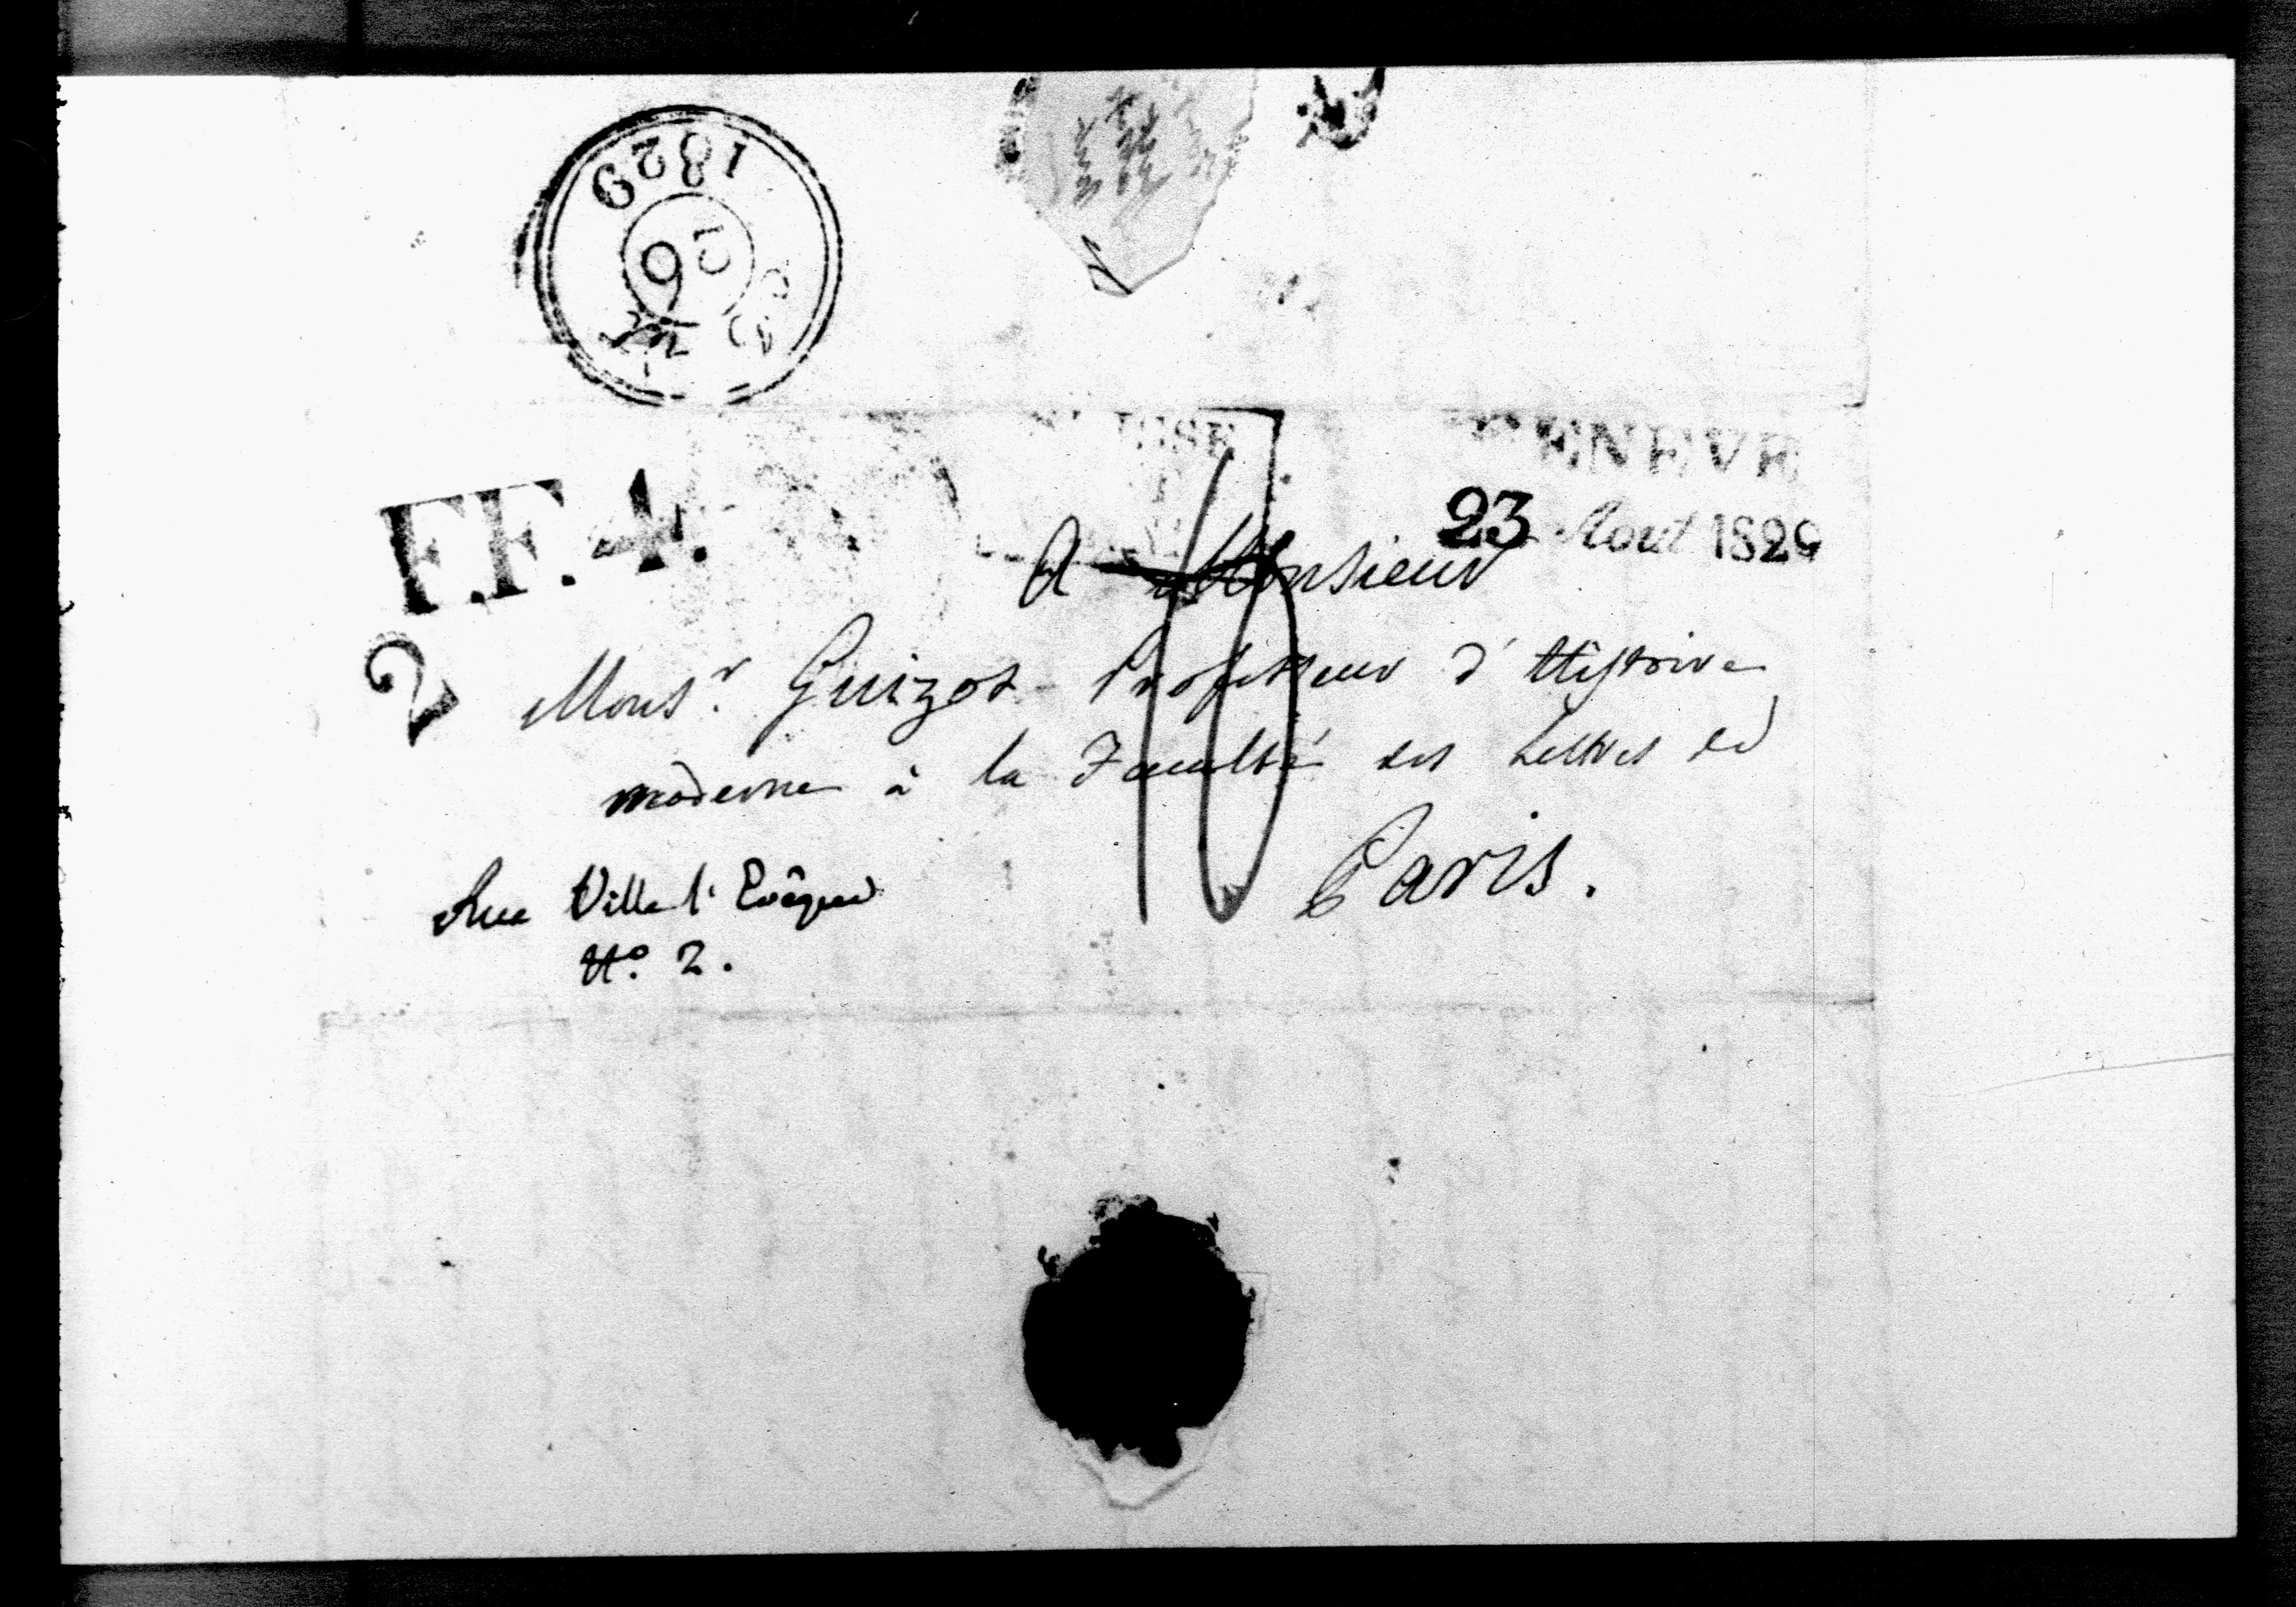 1829
GENEVE
23 Aout 1829
F.F.4.
A Monsieur
2
Mons.r Guizot Professeur d'Histoire
moderne à la Faculté des Lettres &
Paris.
Rue Ville l'Evêque
N.o 2.